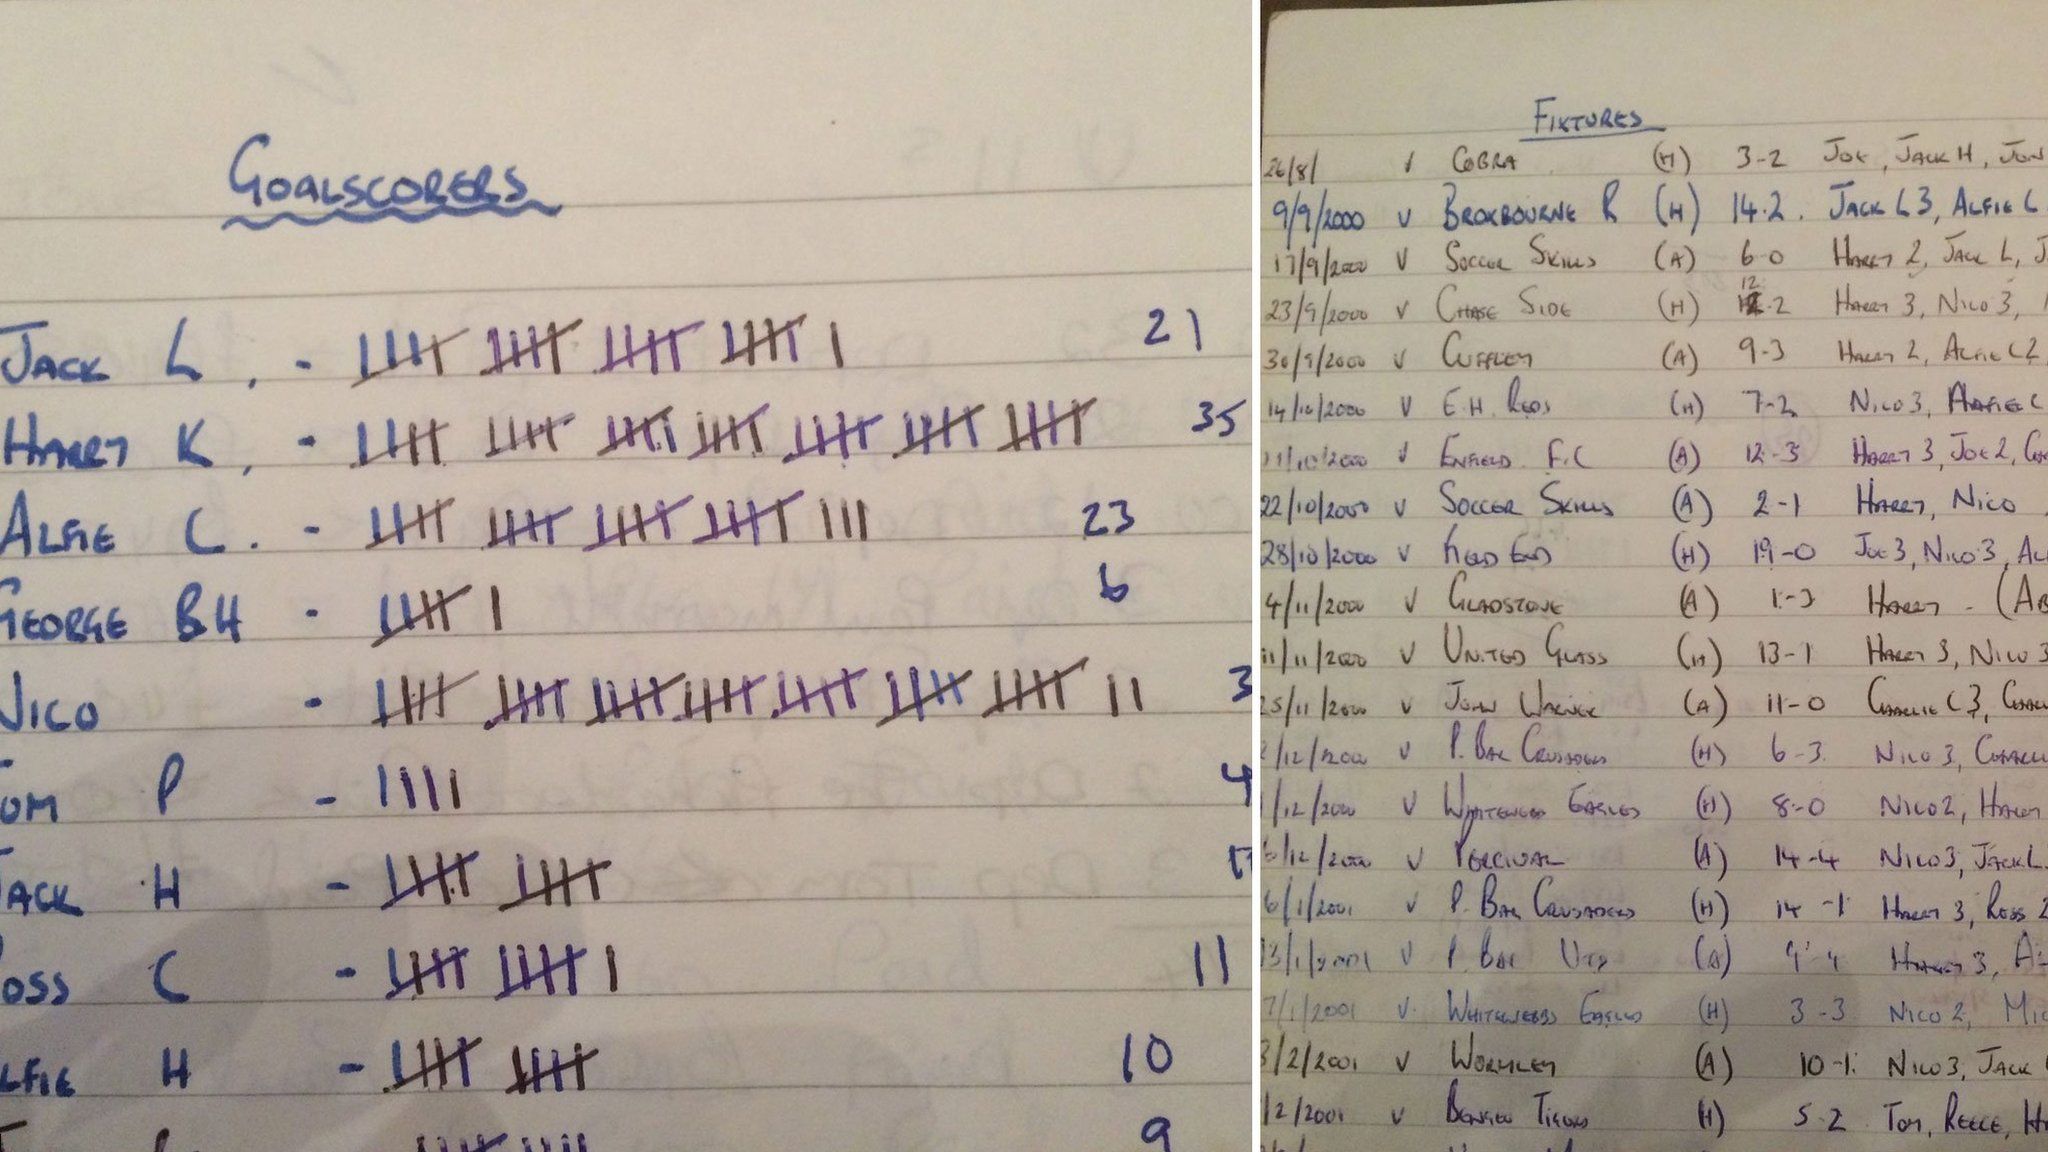 GOALSCORERS
JACK L. - 21
HARRY K. - 35
ALFIE C. - 23
GEORGE BH - 6
NICO - 3
TOM P - 4
JACK H -
ROSS C - 11
ALFIE H - 10
9
FIXTURES
26/8/ V COBRA (H) 3-2 JOE, JACK H, JON
9/9/2000 V BROXBOURNE R (H) 14-2. JACK L 3, ALFIE C
17/9/2000 V SOCCER SKILLS (A) 6-0 HARRY 2, JACK L, J
23/9/2000 V CHASE SIDE (H) 12-2 HARRY 3, NICO 3,
30/9/2000 V CUFFLEY (A) 9-3 HARRY 2, ALFIE C 2,
14/10/2000 V E.H. REDS (H) 7-2 NICO 3, ALFIE C
/10/2000 V ENFIELD F.C (A) 12-3 HARRY 3, JOE 2,
22/10/2000 V SOCCER SKILLS (A) 2-1 HARRY, NICO
28/10/2000 V (H) 19-0 JOE 3, NICO 3, AL
4/11/2000 V GLADSTONE (A) 1-3 HARRY - (AB
11/11/2000 V UNITED GLASS (H) 13-1 HARRY 3, NICO 3
25/11/2000 V JOHN WARNER (A) 11-0 CHARLIE C 3,
2/12/2000 V P. BAR CRUSADERS (H) 6-3 NICO 3,
/12/2000 V WHITEWEBBS EAGLES (H) 8-0 NICO 2, HARRY
6/12/2000 V PERCIVAL (A) 14-4 NICO 3, JACK L
6/1/2001 V P. BAR CRUSADERS (H) 14-1 HARRY 3, ROSS 2
13/1/2001 V P. BAR UTD (A) 4-4 HARRY 3, A
7/1/2001 V. WHITEWEBBS EAGLES (H) 3-3 NICO 2, MIC
3/2/2001 V WORMLEY (A) 10-1 NICO 3, JACK
/2/2001 V TIGERS (H) 5-2 TOM, REECE, H